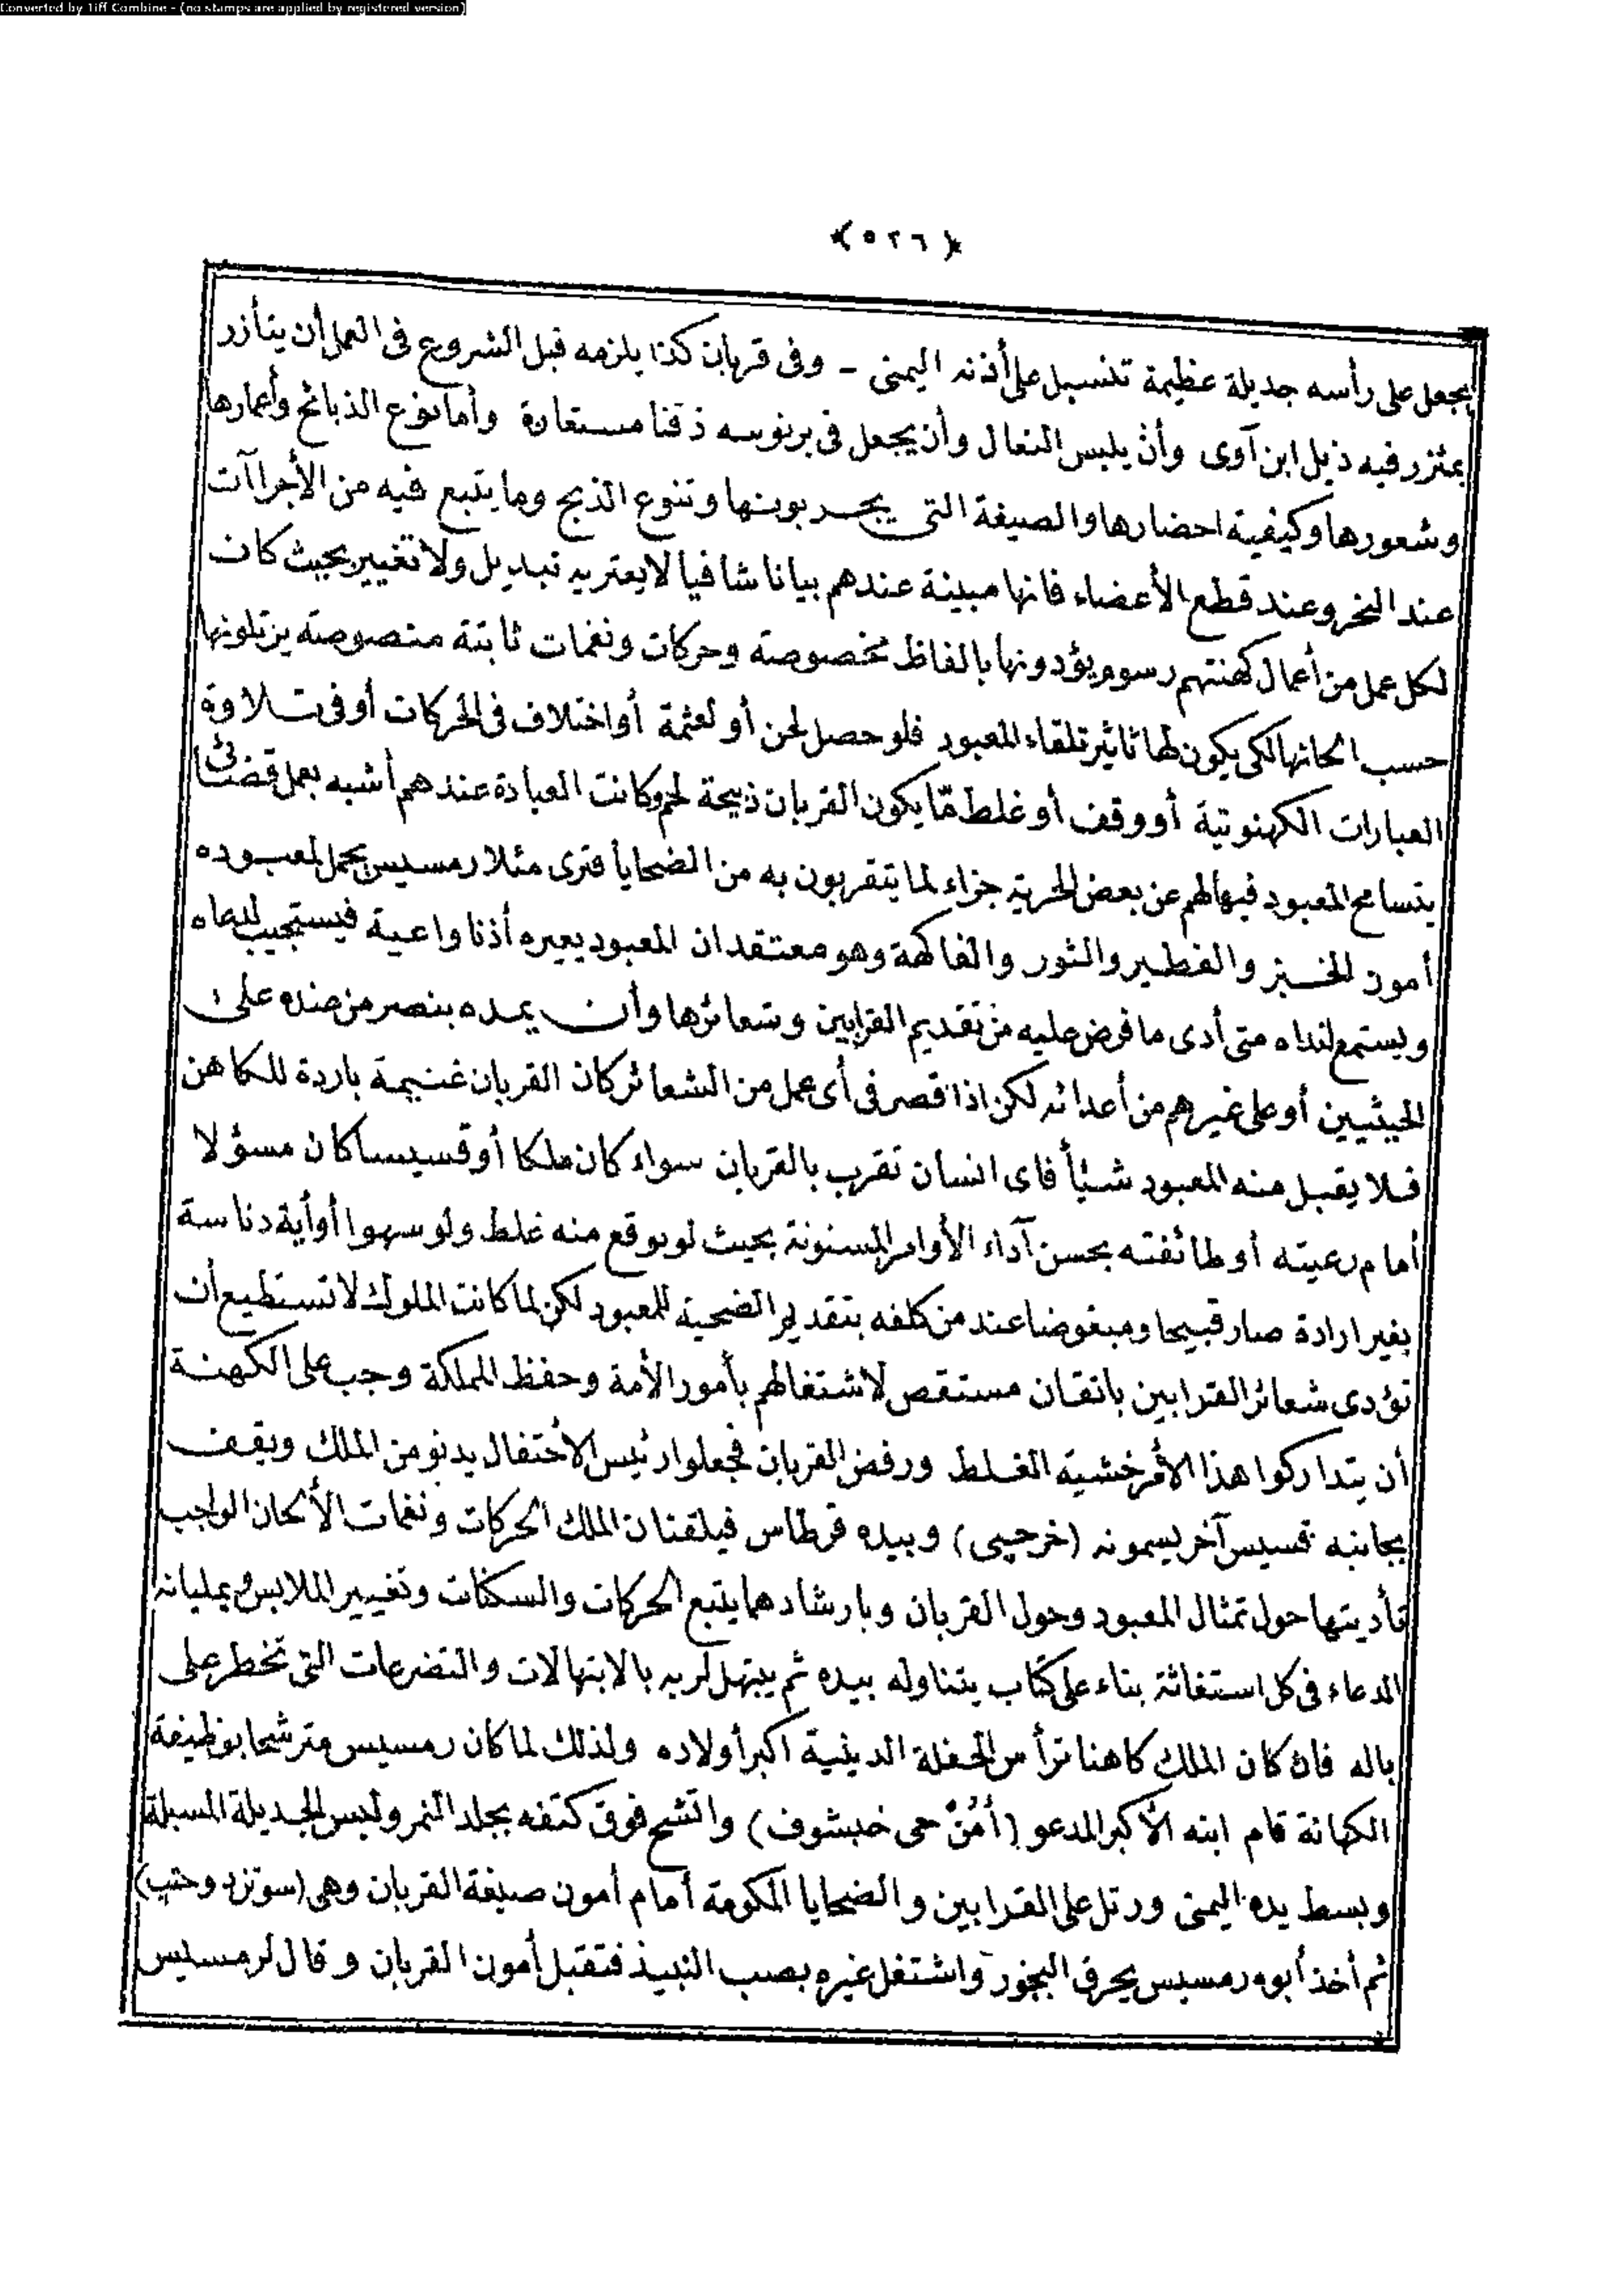 Converted by Tiff Combine - (no stamps are applied by registered version)
﴿٥٢٦﴾
يجعل على رأسه جديلة عظيمة تنسبل على أذنه اليمنى - وفى قربان كذا يلزمه قبل الشروع فى العمل أن يتأزر
بمئزر فيه ذيل ابن آوى وأن يلبس النعال وأن يجعل فى برنوسه ذقنا مستعارة وأما نوع الذبائح وأعمارها
وشعورها وكيفية احضارها والصيغة التى يجربونها وتنوع الذبح وما يتبع فيه من الأجراآت
عند النحر وعند قطع الأعضاء فانها مبينة عندهم بيانا شافيا لا يعتريه تبديل ولا تغيير بحيث كان
لكل عمل من أعمال كهنتهم رسوم يؤدونها بالفاظ مخصوصة وحركات ونغمات ثابتة منصوصة يرتلونها
حسب الحانها لكى يكون لها تأثير تلقاء المعبود فلو حصل لحن أو لعثمة أو اختلاف فى الحركات أو فى تلاوة
العبارات الكهنوتية أو وقف أو غلط مّا يكون القربان ذبيحة لحم وكانت العبادة عندهم أشبه بعمل قضائى
يتسامح المعبود فيها لهم عن بعض الحرية جزاء لما يتقربون به من الضحايا فترى مثلا رمسيس يحمل لمعبوده
أمون الخبز والفطير والثور والفاكهة وهو معتقد ان المعبود يعيره أذنا واعية فيستجيب لدعاه
ويستمع لنداه متى أدى ما فرض عليه من تقديم القرابين وشعائرها وأن يمده بنصر من عنده على
الحيثيين أو على غيرهم من أعدائه لكن اذا قصر فى أى عمل من الشعائر كان القربان غنيمة باردة للكاهن
فلا يقبل منه المعبود شيأ فاى انسان تقرب بالقربان سواء كان ملكا أو قسيسا كان مسؤلا
أمام رعيته أو طائفته بحسن آداء الأوامر المسنونة بحيث لو وقع منه غلط ولو سهوا أو أية دناسة
بغير ارادة صار قبيحا ومبغوضا عند من كلفه بتقديم الضحية للمعبود لكن لما كانت الملوك لا تستطيع أن
تؤدى شعائر القرابين باتقان مستقص لاشتغالهم بأمور الأمة وحفظ المملكة وجب على الكهنة
أن يتداركوا هذا الأمر خشية الغلط ورفض القربان فجعلوا رئيس الأحتفال يدنو من الملك ويقف
بجانبه قسيس آخر يسمونه (خرحبى) وبيده قرطاس فيلقنان الملك الحركات ونغمات الألحان الواجب
تأديتها حول تمثال المعبود وحول القربان وبارشادهما يتبع الحركات والسكنات وتغيير الملابس ويمليانه
الدعاء فى كل استغاثة بناء على كتاب يتناوله بيده ثم يبتهل لربه بالابتهالات والتضرعات التى تخطر على
باله فان كان الملك كاهنا ترأس الحفلة الدينية اكبر أولاده ولذلك لما كان رمسيس مترشحا بوظيفة
الكهانة قام ابنه الأكبر المدعو (أمن حى خبشوف) واتشح فوق كتفه بجلد النمر ولبس الجديلة المسبلة
وبسط يده اليمنى ورتل على القرابين والضحايا المكومة أمام أمون صيغة القربان وهى (سوتزد وحتپ)
ثم أخذ أبوه رمسيس يحرق البخور واشتغل غيره بصب النبيذ فتقبل أمون القربان وقال لرمسيس